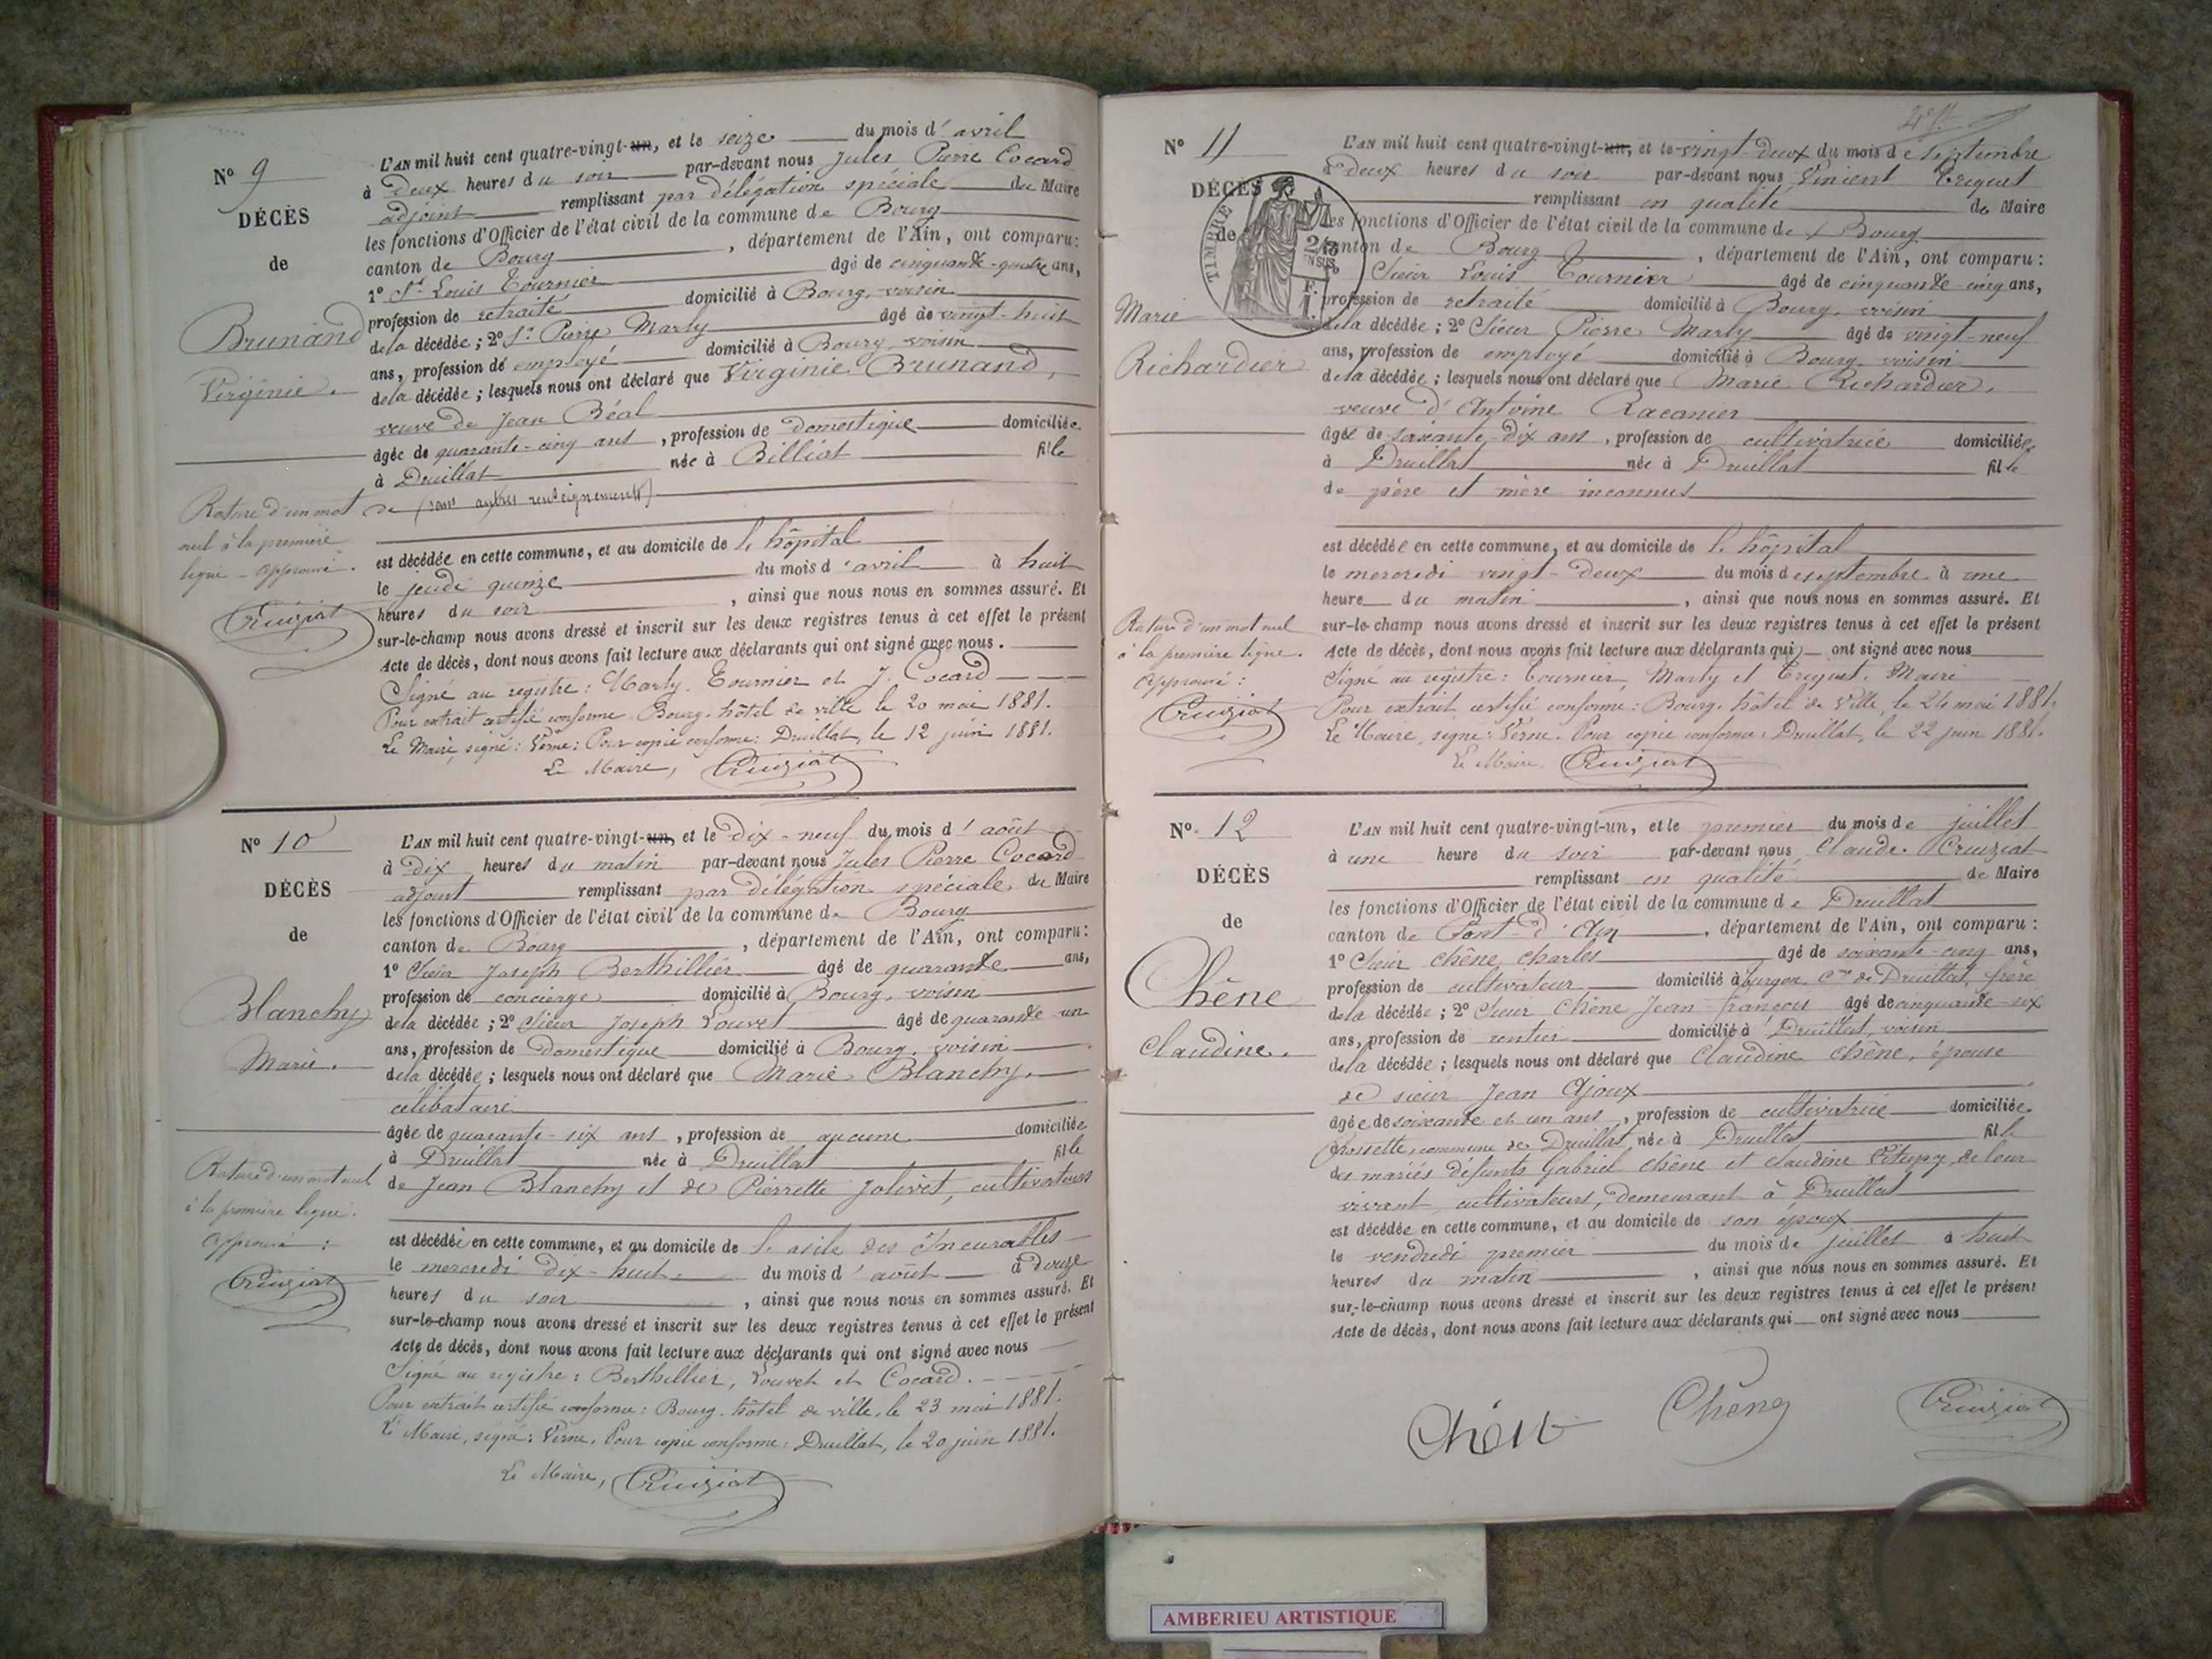 Nº 9
DÉCÈS
de
Brunand
Virginie.
Rature d'un mot
nul à la première
ligne - Approuvé.
Cruiziat
L'AN mil huit cent quatre-vingt-un, et le seize du mois d'avril
à deux heures du soir par-devant nous Jules Pierre Cocard
adjoint remplissant par délégation spéciale du Maire
les fonctions d'Officier de l'état civil de la commune de Bourg
canton de Bourg, département de l'Ain, ont comparu:
1º Sr Louis Tournier âgé de cinquante-quatre ans,
profession de retraité domicilié à Bourg, voisin
de la décédée; 2º Sr Pierre Marly âgé de vingt-huit
ans, profession de employé domicilié à Bourg, voisin
de la décédée; lesquels nous ont déclaré que Virginie Brunand,
veuve de Jean Béal
âgée de quarante-cinq ans, profession de domestique domiciliée
à Druillat née à Billiat fille
de (sans autres renseignements)
est décédée en cette commune, et au domicile de l'hôpital
le jeudi quinze du mois d'avril à huit
heures du soir, ainsi que nous nous en sommes assuré. Et
sur-le-champ nous avons dressé et inscrit sur les deux registres tenus à cet effet le présent
Acte de décès, dont nous avons fait lecture aux déclarants qui ont signé avec nous.
Signé au registre: Marly, Tournier et J. Cocard
Pour extrait certifié conforme. Bourg, hôtel de ville le 20 mai 1881.
Le Maire, signé: Verne: Pour copie conforme: Druillat, le 12 juin 1881.
Le Maire, Cruiziat
Nº 10
DÉCÈS
de
Blanchy
Marie.
Rature d'un mot nul
à la première ligne.
Approuvé:
Cruiziat
L'AN mil huit cent quatre-vingt-un, et le dix-neuf du mois d'août
à dix heures du matin par-devant nous Jules Pierre Cocard
adjoint remplissant par délégation spéciale du Maire
les fonctions d'Officier de l'état civil de la commune de Bourg
canton de Bourg, département de l'Ain, ont comparu:
1º Sieur Joseph Berthillier âgé de quarante ans,
profession de concierge domicilié à Bourg, voisin
de la décédée; 2º Sieur Joseph Louvet âgé de quarante un
ans, profession de Domestique domicilié à Bourg, voisin
de la décédée; lesquels nous ont déclaré que Marie Blanchy,
célibataire
âgée de quarante-six ans, profession de aucune domiciliée
à Druillat née à Druillat fille
de Jean Blanchy et de Pierrette Jolivet, cultivateurs
est décédée en cette commune, et au domicile de l'asile des Incurables
le mercredi dix-huit du mois d'août à douze
heures du soir, ainsi que nous nous en sommes assuré. Et
sur-le-champ nous avons dressé et inscrit sur les deux registres tenus à cet effet le présent
Acte de décès, dont nous avons fait lecture aux déclarants qui ont signé avec nous
Signé au registre: Berthillier, Louvet et Cocard.
Pour extrait certifié conforme: Bourg, hôtel de ville, le 23 mai 1881.
Le Maire, signé: Verne. Pour copie conforme: Druillat, le 20 juin 1881.
Le Maire, Cruiziat
Nº 11
DÉCÈS
de
TIMBRE
Marie
Richardier
Rature d'un mot nul
à la première ligne.
Approuvé:
Cruiziat
L'AN mil huit cent quatre-vingt-un, et le vingt-deux du mois de septembre
à deux heures du soir par-devant nous Vincent Triquet
remplissant en qualité de Maire
les fonctions d'Officier de l'état civil de la commune de Bourg
canton de Bourg, département de l'Ain, ont comparu:
Sieur Louis Tournier âgé de cinquante-cinq ans,
profession de retraité domicilié à Bourg, voisin
de la décédée; 2º Sieur Pierre Marly âgé de vingt-neuf
ans, profession de employé domicilié à Bourg, voisin
de la décédée; lesquels nous ont déclaré que Marie Richardier,
veuve d'Antoine Racanier
âgée de soixante-dix ans, profession de cultivatrice domiciliée
à Druillat née à Druillat fille
de père et mère inconnus
est décédée en cette commune, et au domicile de l'hôpital
le mercredi vingt-deux du mois de septembre à une
heure du matin, ainsi que nous nous en sommes assuré. Et
sur-le-champ nous avons dressé et inscrit sur les deux registres tenus à cet effet le présent
Acte de décès, dont nous avons fait lecture aux déclarants qui ont signé avec nous
Signé au registre: Tournier, Marly et Triquet, Maire
Pour extrait certifié conforme: Bourg, hôtel de Ville, le 24 mai 1881.
Le Maire, signé: Verne. Pour copie conforme: Druillat, le 22 juin 1881.
Le Maire, Cruiziat
Nº 12
DÉCÈS
de
Chêne
Claudine.
L'AN mil huit cent quatre-vingt-un, et le premier du mois de juillet
à une heure du soir par-devant nous Claude Cruiziat
remplissant en qualité de Maire
les fonctions d'Officier de l'état civil de la commune de Druillat
canton de Pont-d'Ain, département de l'Ain, ont comparu:
1º Sieur Chêne, Charles âgé de soixante-cinq ans,
profession de cultivateur domicilié à Turgon, Cne de Druillat, frère
de la décédée; 2º Sieur Chêne Jean-François âgé de cinquante-six
ans, profession de rentier domicilié à Druillat, voisin
de la décédée; lesquels nous ont déclaré que Claudine Chêne, épouse
de sieur Jean Ajoux
âgée de soixante et un ans, profession de cultivatrice domiciliée
commune de Druillat, née à Druillat fille
des mariés défunts Gabriel Chêne et Claudine de leur
vivant cultivateurs, demeurant à Druillat
est décédée en cette commune, et au domicile de son époux
le vendredi premier du mois de juillet à huit
heures du matin, ainsi que nous nous en sommes assuré. Et
sur-le-champ nous avons dressé et inscrit sur les deux registres tenus à cet effet le présent
Acte de décès, dont nous avons fait lecture aux déclarants qui ont signé avec nous
Chêne Chêne Cruiziat
AMBERIEU ARTISTIQUE